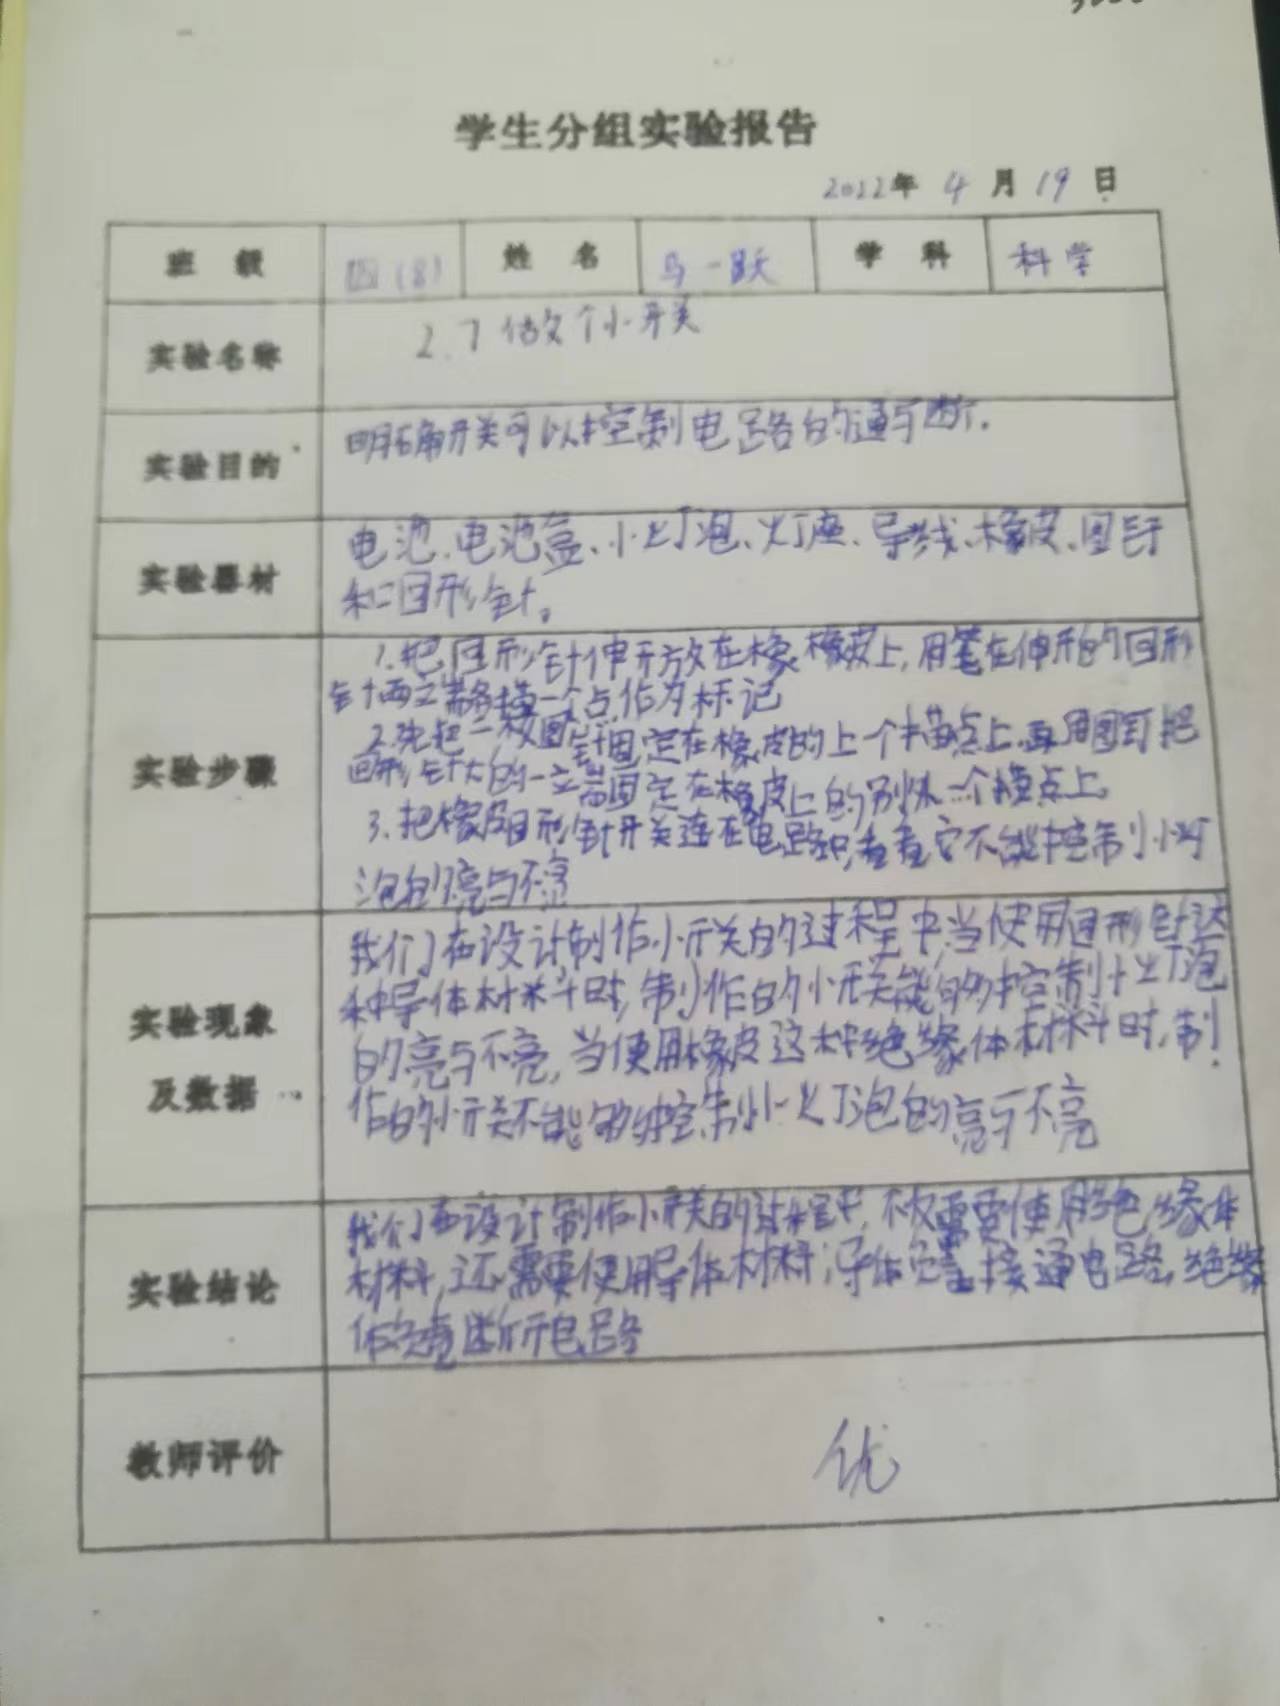 学生分组实验报告
2022年 4 月 19 日
班 级 四(8) 姓 名 马一跃 学 科 科学
实验名称 2.7 做个小开关
实验目的 明确开关可以控制电路的通与断。
实验器材 电池、电池盒、小灯泡、灯座、导线、橡皮、图钉
和回形针。
实验步骤
1.把回形针伸开放在橡橡皮上,用笔在伸形的回形
针两端描一个点作为标记
2.先把一枚图钉固定在橡皮的上一个描点上,再用图钉把
回形针大的一端固定在橡皮上的别外一个描点上。
3.把橡皮回形针开关连在电路中,查查它不能控制小灯
泡的亮与不亮
实验现象
及数据
我们在设计制作小开关的过程中,当使用回形针这
种导体材料时,制作的小开关能够控制小灯泡
的亮与不亮,当使用橡皮这种绝缘体材料时,制
作的小开关不能够控制小灯泡的亮与不亮
实验结论
我们在设计制作小开关的过程中,不仅需要使用绝缘体
材料,还需要使用导体材料;导体负责接通电路,绝缘
体负责断开电路
教师评价 优